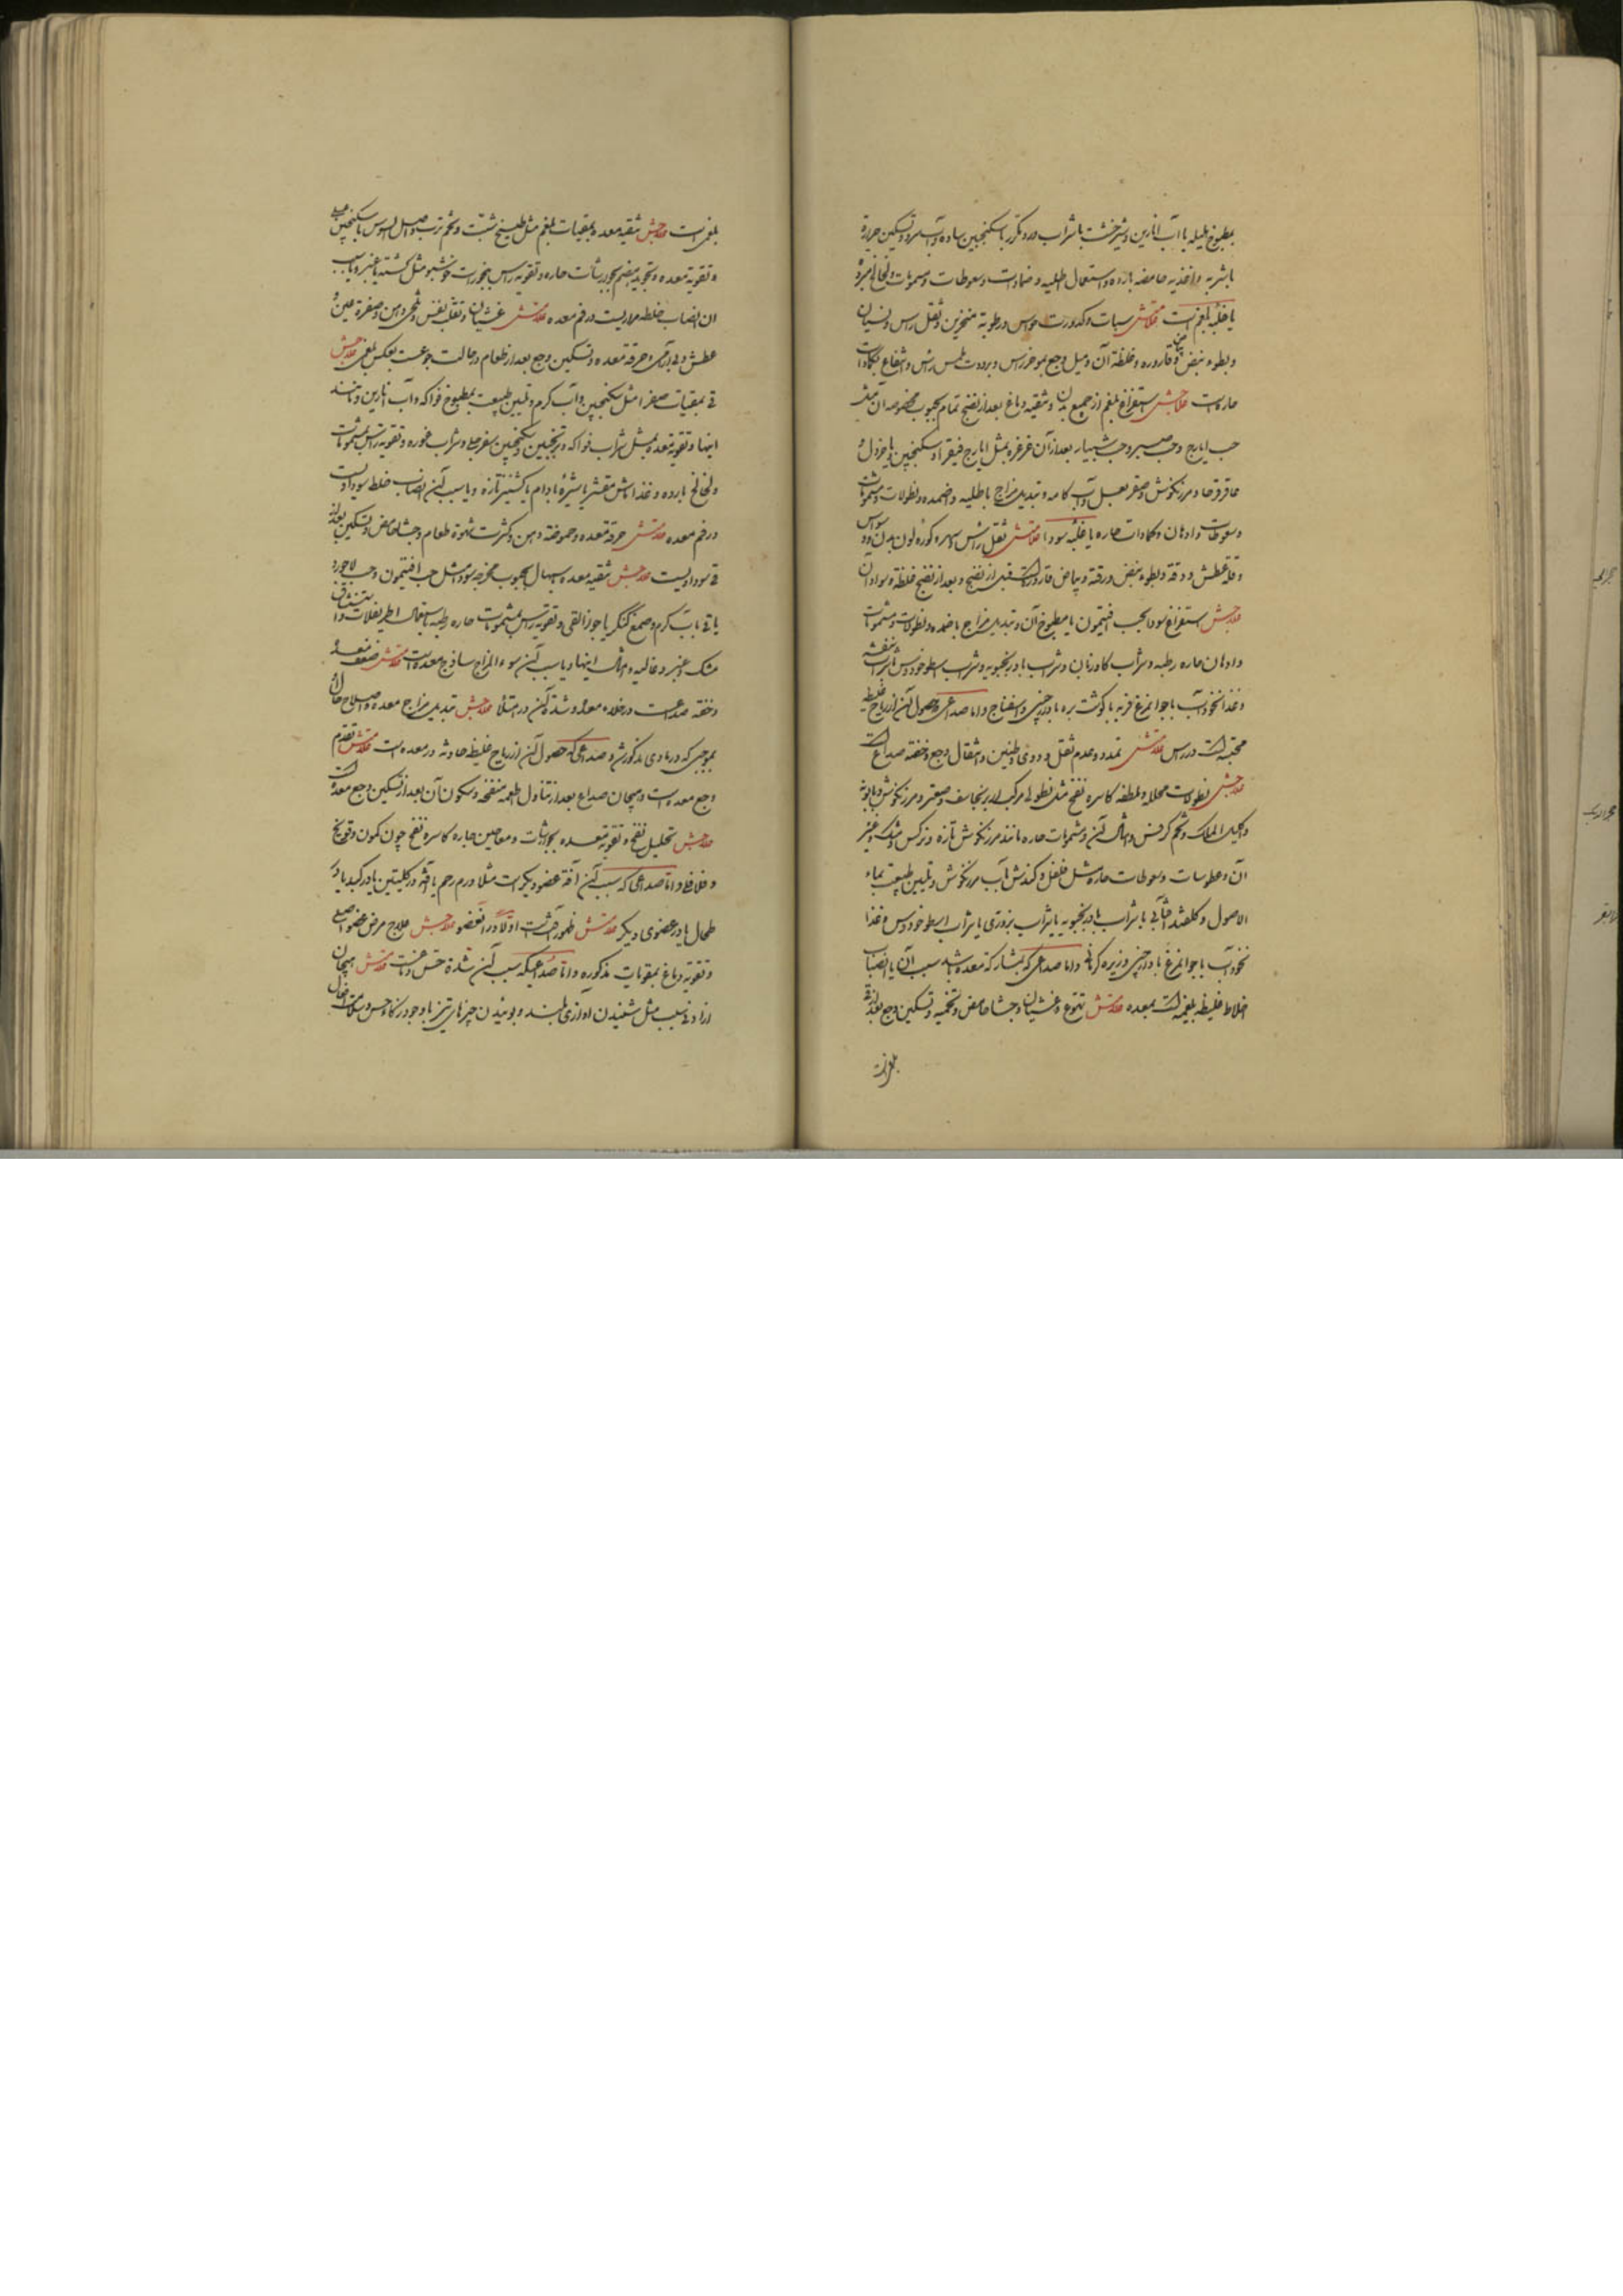 بمطبوخ هلیله یا آب انارین و شیرخشت یا شراب ورد مکرر با سکنجبین ساده و آب سرد و تسکین حرارة
باشربه و اغذیه حامضه بارده و استعمال اطلیه و ضمادات و سعوطات و شمومات و لخالخ مبرده
یا غلبه بلغم است علامتش سبات و کدورت حواس و رطوبة منخرین و ثقل راس و نسیان
و بطوء نبض و بیاض قاروره و غلظة آن و میل وجع بموخر راس و برودت ملمس راس و انتفاع بکمادات
حاره است علاجش استفراغ بلغم از جمیع بدن و تنقیه دماغ بعد از نضج تمام بحبوب مخصوصه آن مثل
حب ایارج و حب صبر و حب شبیار بعد از آن غرغره بمثل ایارج فیقرا و سکنجبین یا خردل و
عاقرقرحا و مرزنکوش و صعتر بعسل و آب کامه و تبدیل مزاج باطلیه و اضمده و نطولات و شمومات
و سعوطات و ادهان و کمادات حاره یا غلبه سودا علامتش ثقل راس و سهر و کمودة لون بدن و وسواس
و قلة عطش و دقة و بطوء نبض و رقة و بیاض قاروره است قبل از نضج و بعد از نضج غلظة و سواد آن
علاجش استفراغ سودا بحب افتیمون یا مطبوخ آن و تبدیل مزاج باضمده و نطولات و شمومات
و ادهان حاره رطبه و شراب کاوزبان و شراب بادرنجبویه و شراب اسطوخودوس و شراب بنفشه
و غذا نخودآب با جوامرغ فربه یا کوشت بره با دارچینی و اسفناج و اما صداعی که حصول آن از ریاح غلیظه
محتبسه است در راس علامتش تمدد و عدم ثقل و دوی و طنین و انتقال وجع و خفة صداع است
علاجش نطولات محلله و ملطفه کاسره نفخ مثل نطولی مرکب از برنجاسف و صعتر و مرزنکوش و بابونه
و اکلیل الملک و تخم کرفس و امثال آن و شمومات حاره مانند مرزنکوش تازه و نرکس و مشک و غیر
آن و عطوسات و سعوطات حاره مثل فلفل و کندش بآب مرزنکوش و تلیین طبیعت بماء
الاصول و کلقند آفتابی با شراب بادرنجبویه یا شراب بزوری یا شراب اسطوخودوس و غذا
نخودآب با جوامرغ با دارچینی و زیره کرمانی و اما صداعی که بمشارکة معده باشد سبب آن یا انصباب
اخلاط غلیظه بلغمیه است بمعده علامتش تهوع و غشیان و جشاء حامض و تخمه و تسکین وجع بعد از قی
بلغمی است
بلغمی است علاجش تنقیه معده بمقیات بلغم مثل طبیخ شبت و تخم ترب و اصل السوس با سکنجبین عسلی
و تقویة معده و تجوید هضم بجوارشات حاره و تقویه راس ببخورات خوشبو مثل کشته یا عنبر و یا سبب
آن انصباب خلطه مراریست در فم معده علامتش غشیان و تقلب نفس و تلخی دهن و صفرة عین و
عطش و بی آرامی و حرقة معده و تسکین وجع بعد از طعام و در حالت جوع است بعکس بلغمی علاجش
قی بمقیات صفرا مثل سکنجبین و آب کرم و تلیین طبیعت بمطبوخ فواکه و آب انارین و مانند
اینها و تقویة معده بمثل شراب فواکه و ترنجبین و سکنجبین سفرجلی و شراب غوره و تقویة راس بشمومات
و لخالخ بارده و غذا ماش مقشر با شیرهٔ بادام یا کشنیز تازه و یا سبب آن انصباب خلط سوداویست
در فم معده علامتش حرقة معده و حموضة دهن و کثرت شهوة طعام و جشاء حامض و تسکین بعد از
قی سوداویست علاجش تنقیه معده باسهال بحبوب مخرجه سودا مثل حب افتیمون و حب لاجورد
یا قی بآب کرم و صمغ کنکر یا جوز القی و تقویة راس بشمومات حاره رطبه باستعمال اطریفلات و استنشاق
مشک و عنبر و غالیه و امثال اینها و یا سبب آن سوء المزاج ساذج معده است علامتش ضعف معده
و خفة صداع است در خلاء معده و شدة آن در امتلا علاجش تبدیل مزاج معده و اصلاح حال آن
بموجبی که در مبادی مذکور شد و صداعی که حصول آن از ریاح غلیظه حادثه در معده است علامتش تقدم
وجع معده است و هیجان صداع بعد از تناول اطعمه منفخه و سکون آن بعد از تسکین وجع معده است
علاجش تحلیل نفخ و تقویة معده بجوارشات و معاجین حاره کاسره نفخ چون کمونی و فودنجی
و فلافلی و اما صداعی که سبب آن آفة عضو دیکر است مثلا ورم رحم یا آفة در کلیتین یا در کبد یا در
طحال یا در عضوی دیکر علامتش ظهور آفت است اولا در آن عضو علاجش علاج مرض عضو اصلی
و تقویة دماغ بمقویات مذکوره و اما صداعی که سبب آن شدة حس دماغست علامتش هیجان
از ادنی سبب مثل شنیدن آوازی بلند و بوئیدن چیزهای تیز با وجود ذکاء حواس و سلامت افعال